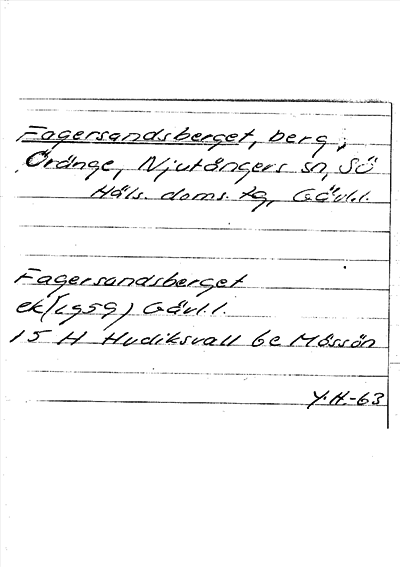 Fagersandsberget, berg,
Öränge, Njutångers sn, SÖ
Häls. doms. tg, Gävl.l.
Fagersandsberget
ek (1959) Gävl.l.
15 H Hudiksvall 6c Mössön
Y.H.-63